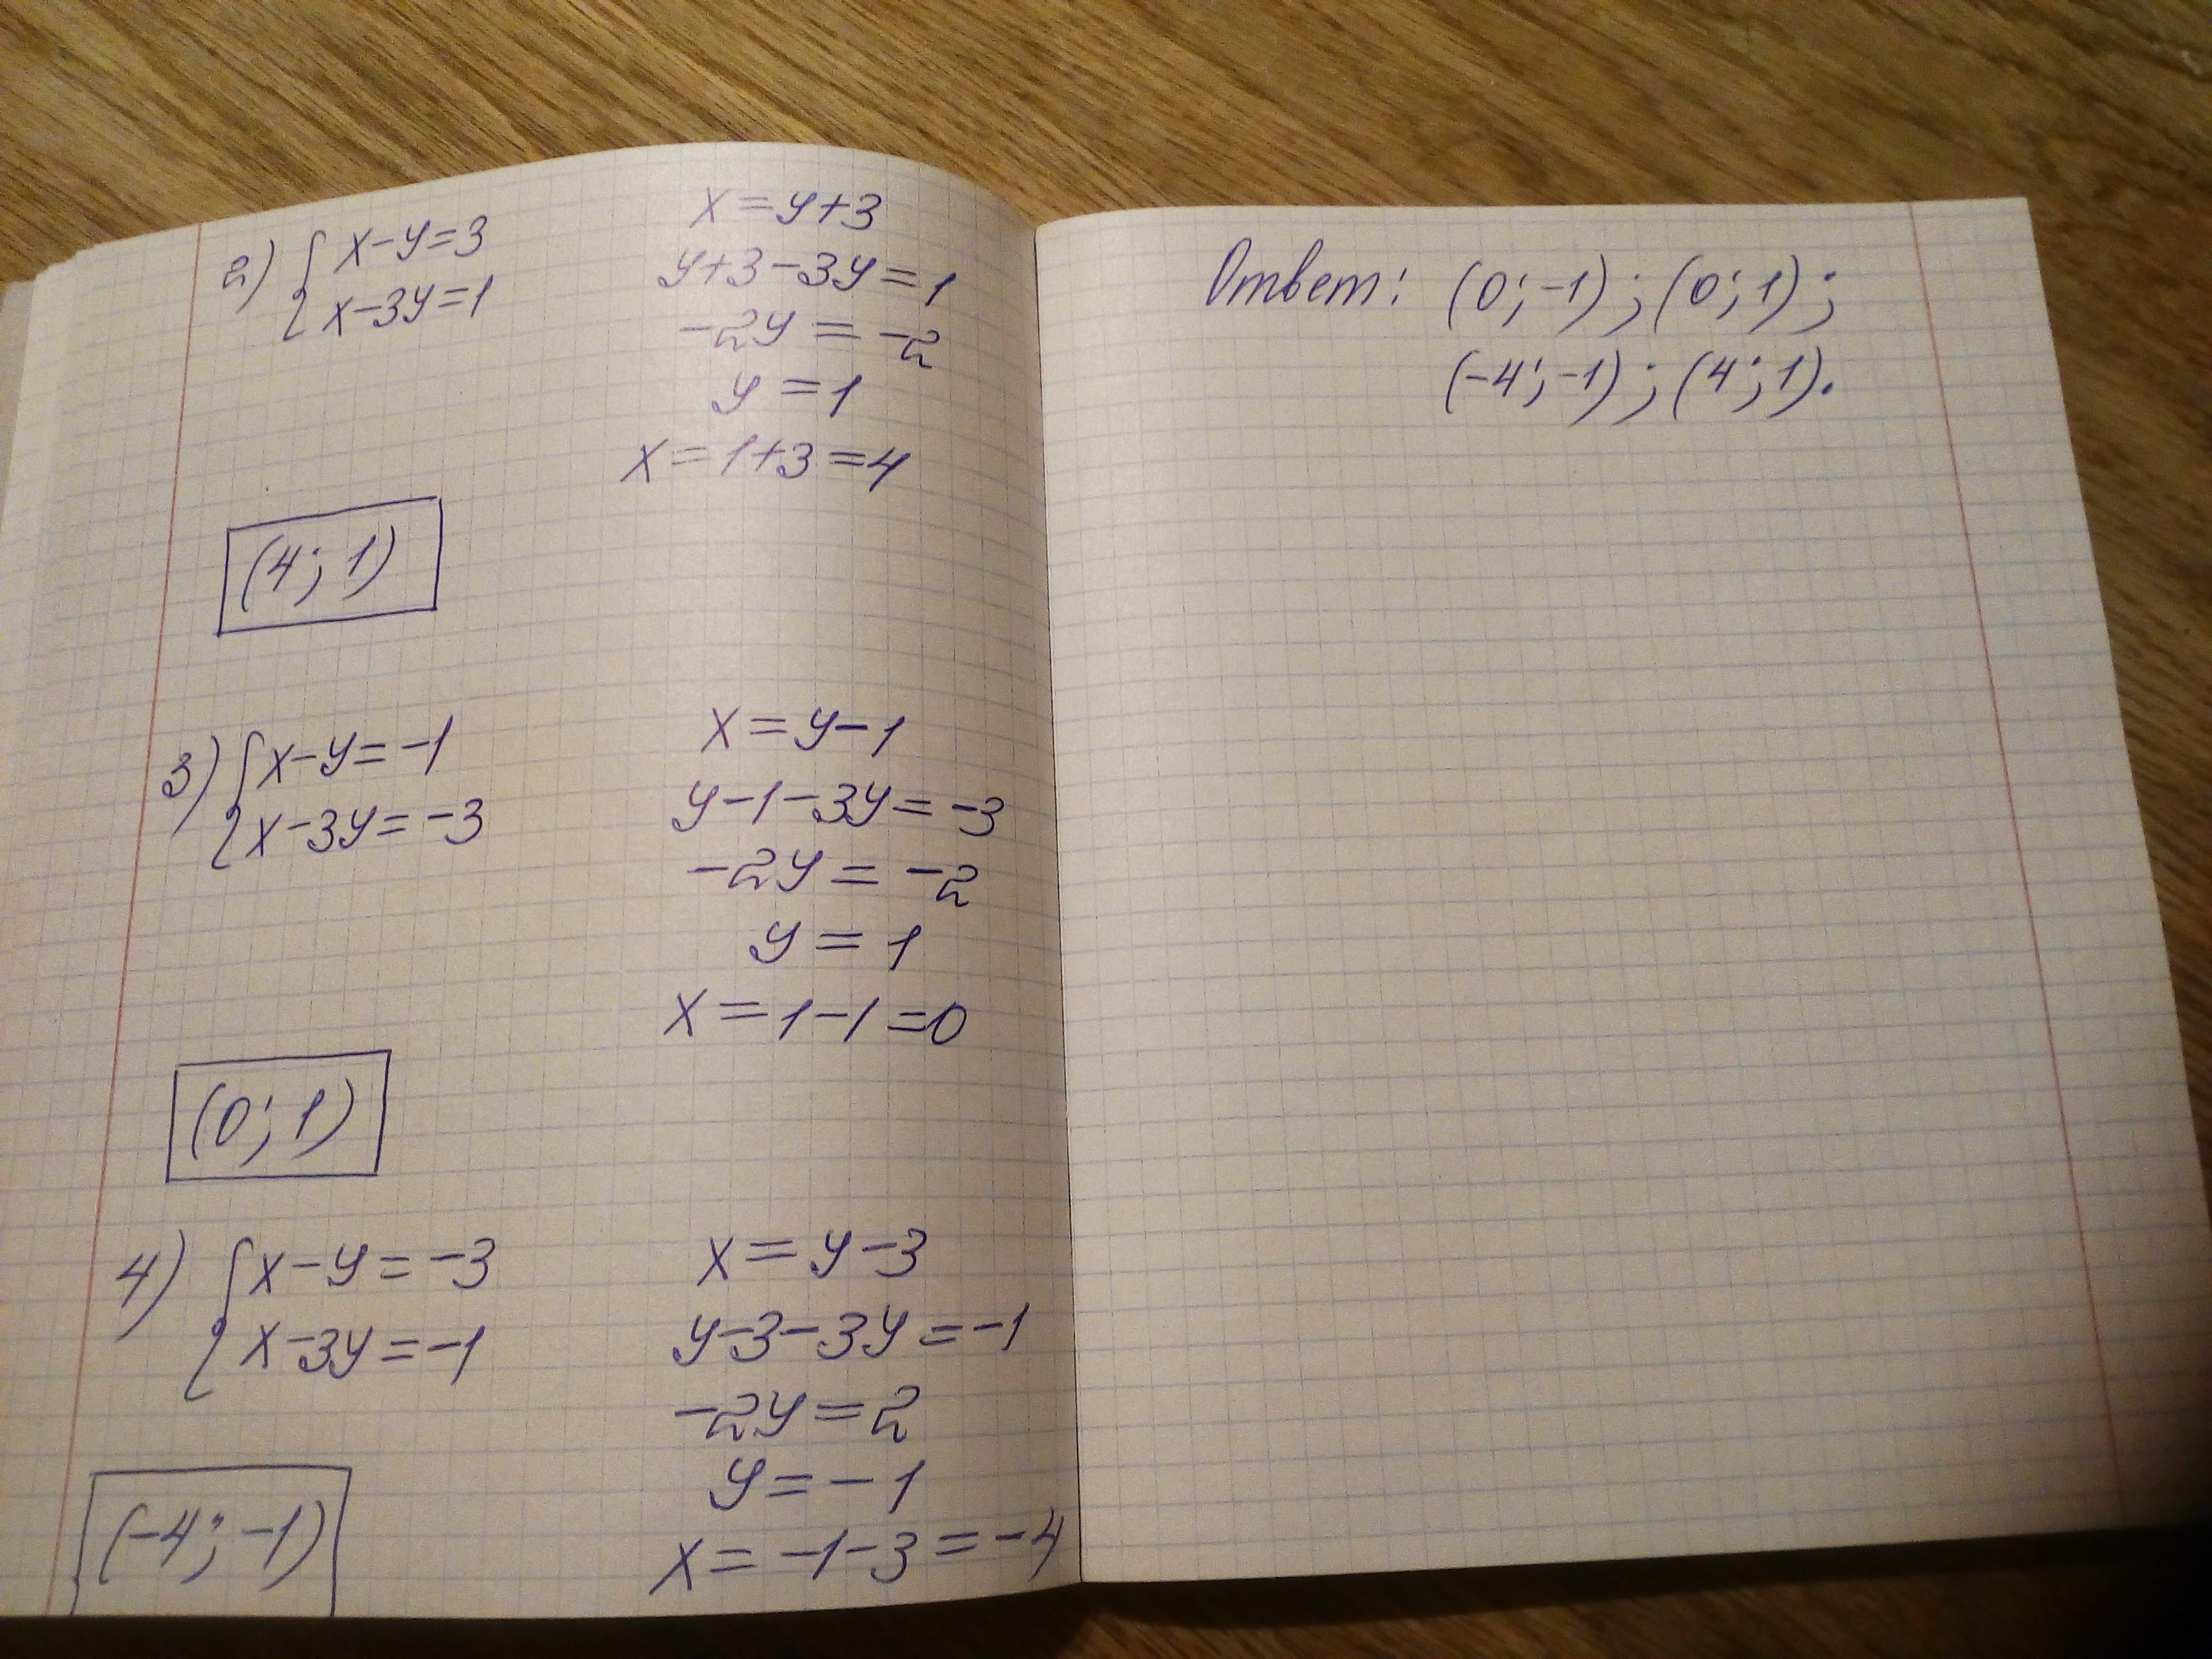 2) { x-y=3
x-3y=1
x=y+3
y+3-3y=1
-2y=-2
y=1
x=1+3=4
(4; 1)
3) { x-y=-1
x-3y=-3
x=y-1
y-1-3y=-3
-2y=-2
y=1
x=1-1=0
(0; 1)
4) { x-y=-3
x-3y=-1
x=y-3
y-3-3y=-1
-2y=2
y=-1
x=-1-3=-4
(-4; -1)
Ответ: (0; -1); (0; 1);
(-4; -1); (4; 1).